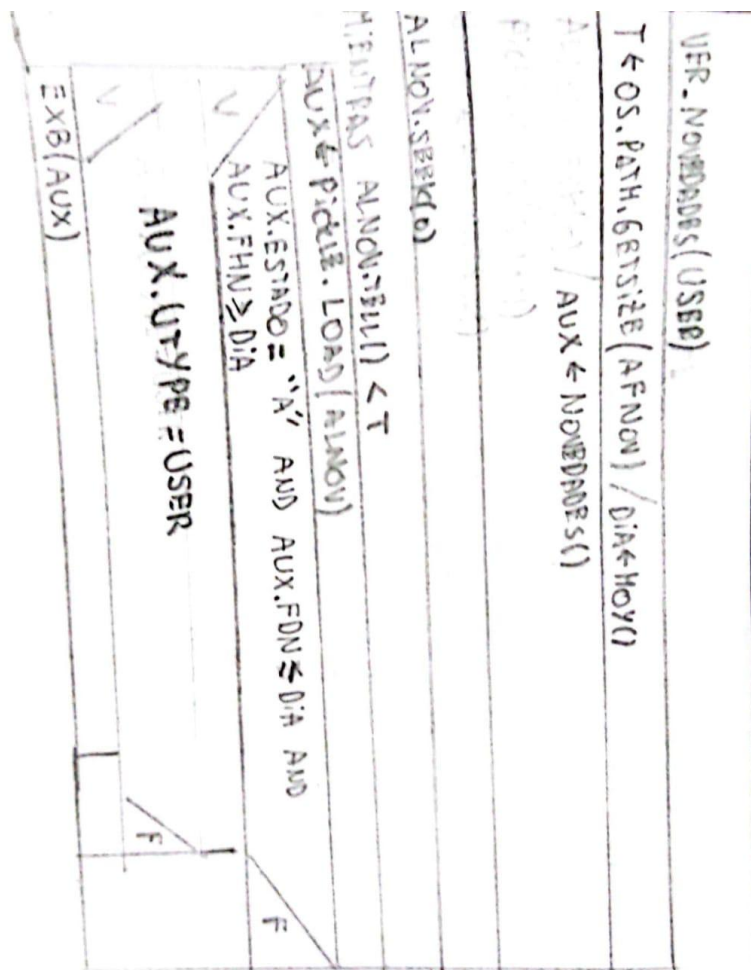 VER_NOVEDADES(USER)
T ← OS.PATH.GETSIZE(AFNOV) / DIA ← HOY()
/ AUX ← NOVEDADES()
ALNOV.SEEK(0)
MIENTRAS ALNOV.TELL() < T
AUX ← PICKLE.LOAD(ALNOV)
AUX.ESTADO = "A" AND AUX.FDN ≤ DIA AND
AUX.FHN ≥ DIA
V F
AUX.UTYPE = USER
V F
EXB(AUX)